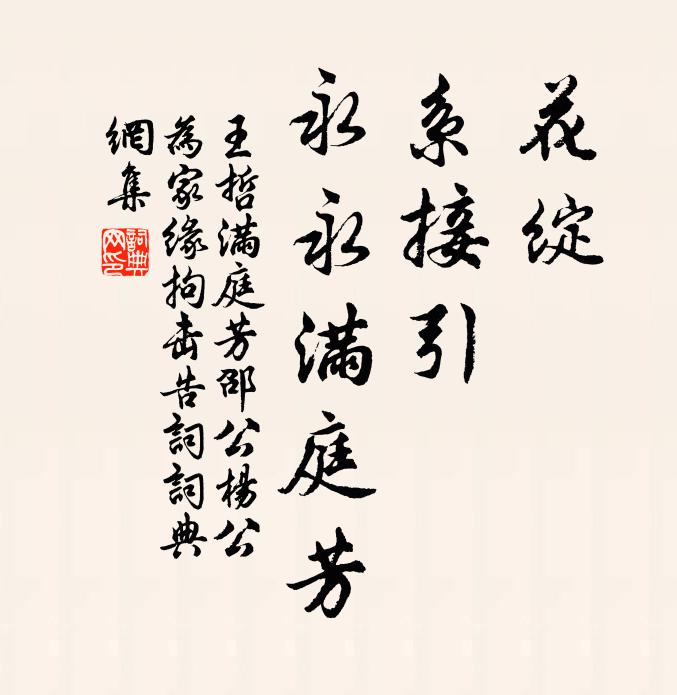 花綻
系接引
永永滿庭芳
王哲滿庭芳邵公楊公
為家緣拘击告詞詞典
網集
詞典網印